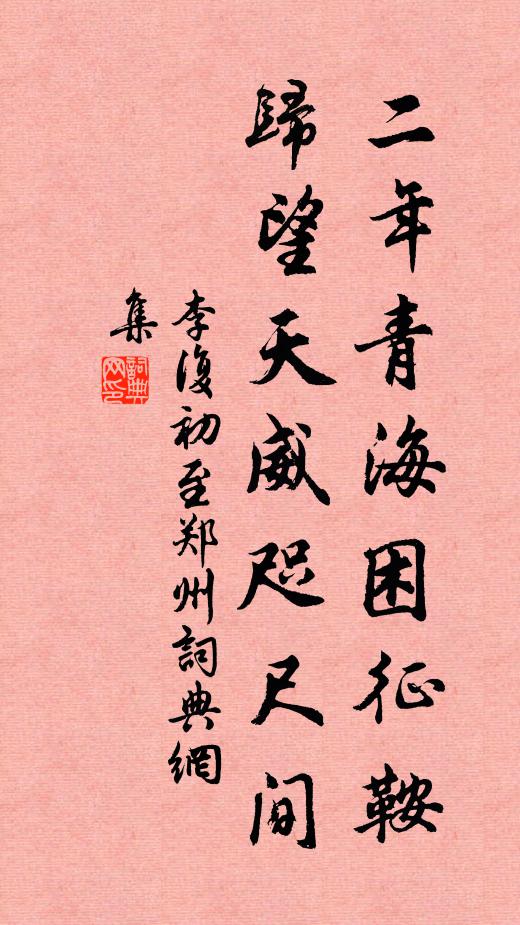 二年青海困征鞍
歸望天威咫尺間
李復初至郑州詞典網
集
詞典网印